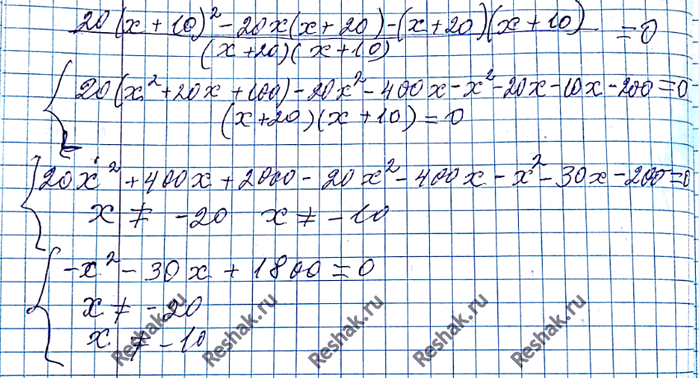 20(x+10)² - 20x(x+20) - (x+20)(x+10)
(x+20)(x+10) = 0
20(x²+20x+100) - 20x² - 400x - x² - 20x - 10x - 200 = 0
(x+20)(x+10) = 0
20x² + 400x + 2000 - 20x² - 400x - x² - 30x - 200 = 0
x ≠ -20 x ≠ -10
-x² - 30x + 1800 = 0
x ≠ -20
x ≠ -10
Reshak.ru Reshak.ru Reshak.ru Reshak.ru Reshak.ru